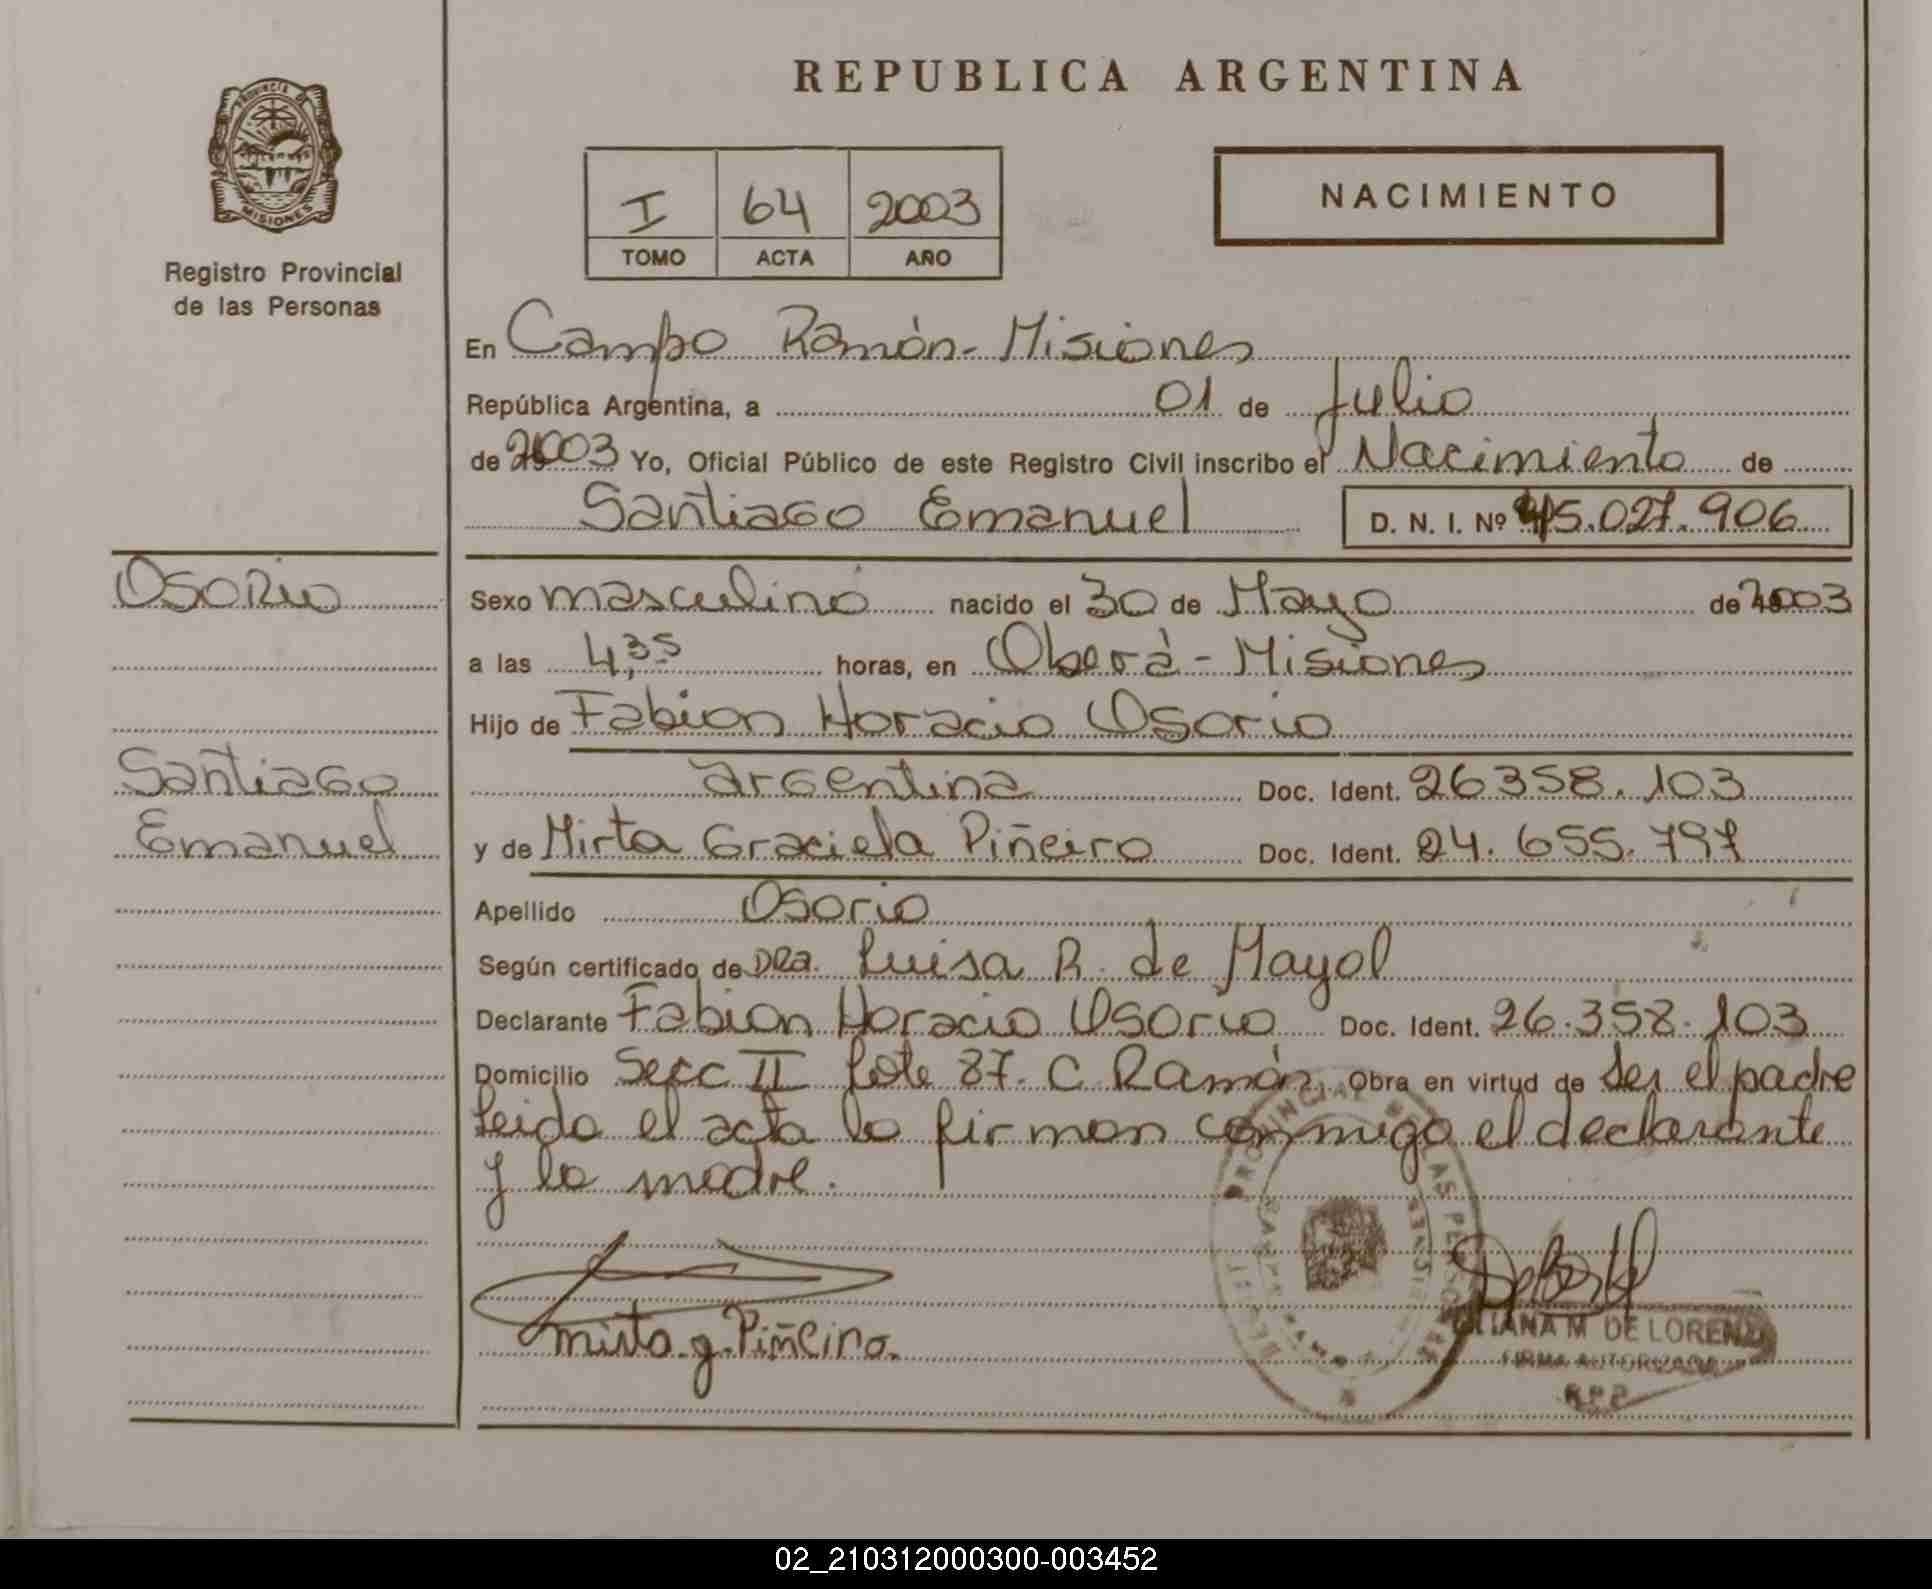 REPUBLICA ARGENTINA
PROVINCIA DE
MISIONES
Registro Provincial
de las Personas
I 64 2003
TOMO ACTA AÑO
NACIMIENTO
En Campo Ramón - Misiones
República Argentina, a 01 de Julio
de 2003 Yo, Oficial Público de este Registro Civil inscribo el Nacimiento de
Santiago Emanuel D. N. I. Nº 45.027.906
Osorio
Santiago
Emanuel
Sexo masculino nacido el 30 de Mayo de 2003
a las 4,35 horas, en Oberá - Misiones
Hijo de Fabion Horacio Osorio
argentina Doc. Ident. 26358.103
y de Mirta Graciela Piñeiro Doc. Ident. 24.655.797
Apellido Osorio
Según certificado de Dra. Luisa R. de Mayol
Declarante Fabion Horacio Osorio Doc. Ident. 26.358.103
Domicilio Secc II Lote 87. C. Ramón, Obra en virtud de ser el padre
Leida el acta la firman conmigo el declarante
y la madre.
mirta.g.Piñeiro.
PROVINCIAL DE LAS PERSONAS
LILIANA M DE LORENZ
FIRMA AUTORIZADA
R.P.P.
02_210312000300-003452